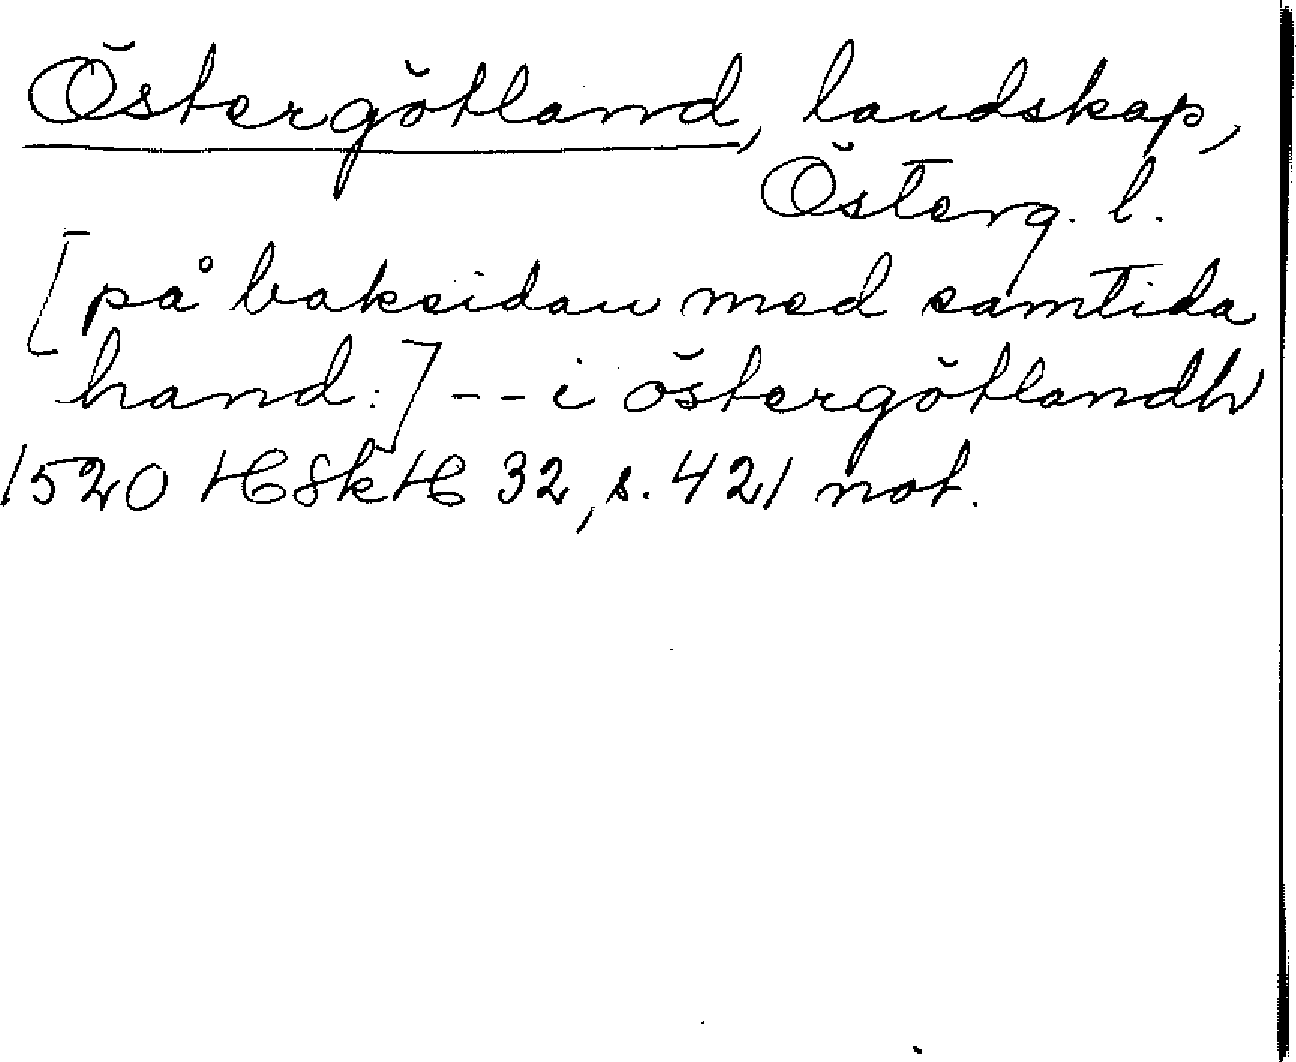 Östergötland, landskap,
Österg. l.
[på baksidan med samtida
hand:] -- i östergötlandh
1520 HSkH 32, s. 421 not.